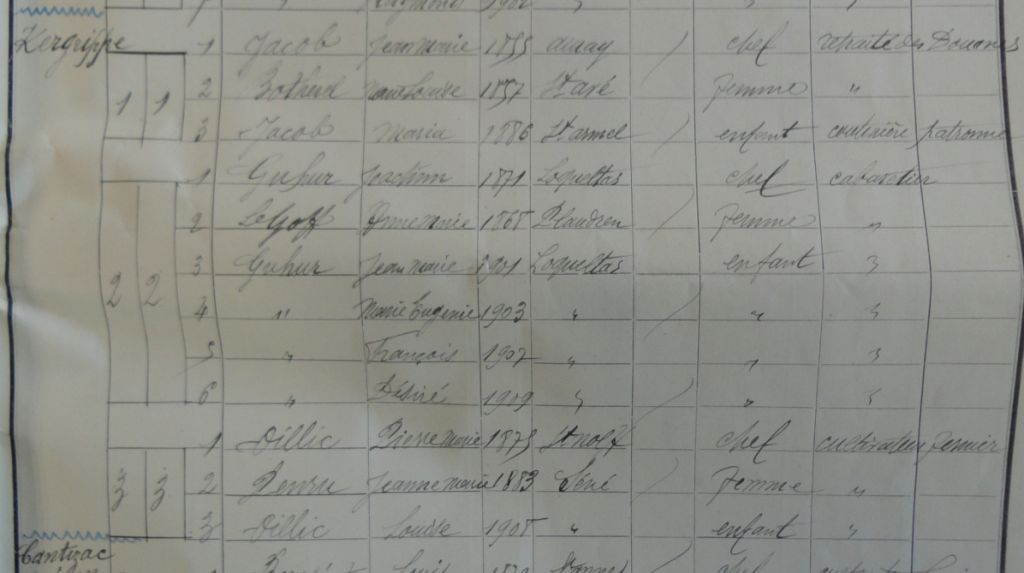 Raymond 1902 " " "
Kergrippe 1 Jacob Jean Marie 1855 auray / chef retraité des Douanes
1 1 2 Marie Louise 1857 St avé femme "
3 Jacob Maria 1886 St armel / enfant couturière patronne
1 Guhur Joachim 1871 Loqueltas chef cabaretier
2 Le Goff Anne marie 1865 Plaudren / femme "
2 2 3 Guhur Jean marie 1901 Loqueltas enfant "
4 " Marie Eugenie 1903 " / " "
5 " François 1907 " " "
6 " Désiré 1909 " / " "
1 Dillic Pierre Marie 1875 St nolf chef cultivateur fermier
3 3 2 Jeanne marie 1883 Séné / femme "
3 Dillic Louise 1905 " enfant "
Cantizac